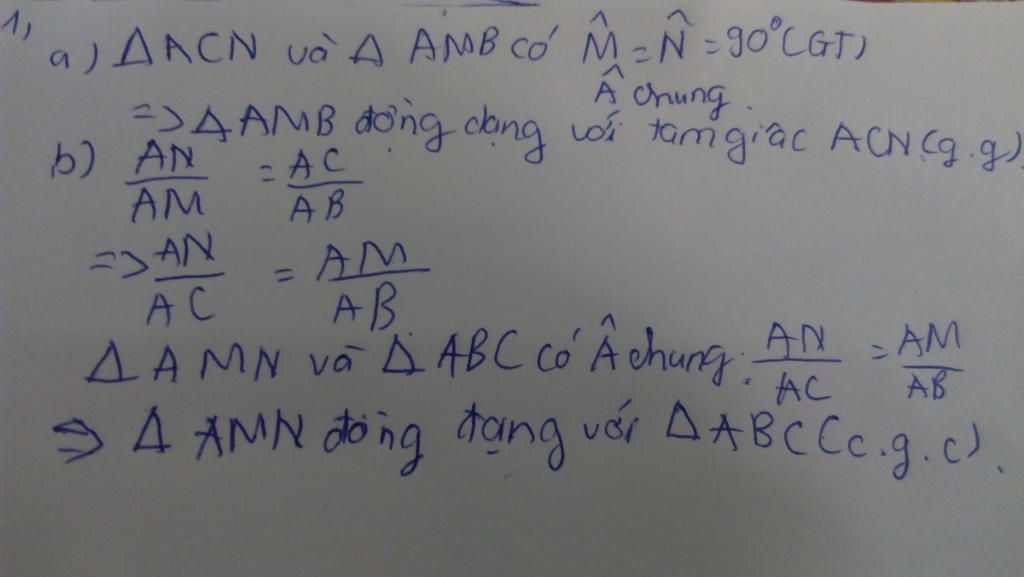 1,
a) Δ ACN và Δ AMB có M̂ = N̂ = 90° (GT)
Â chung.
=> Δ AMB đồng dạng với tam giác ACN (g.g)
b) AN/AM = AC/AB
=> AN/AC = AM/AB
Δ AMN và Δ ABC có Â chung: AN/AC = AM/AB
=> Δ AMN đồng đạng với Δ ABC (c.g.c).